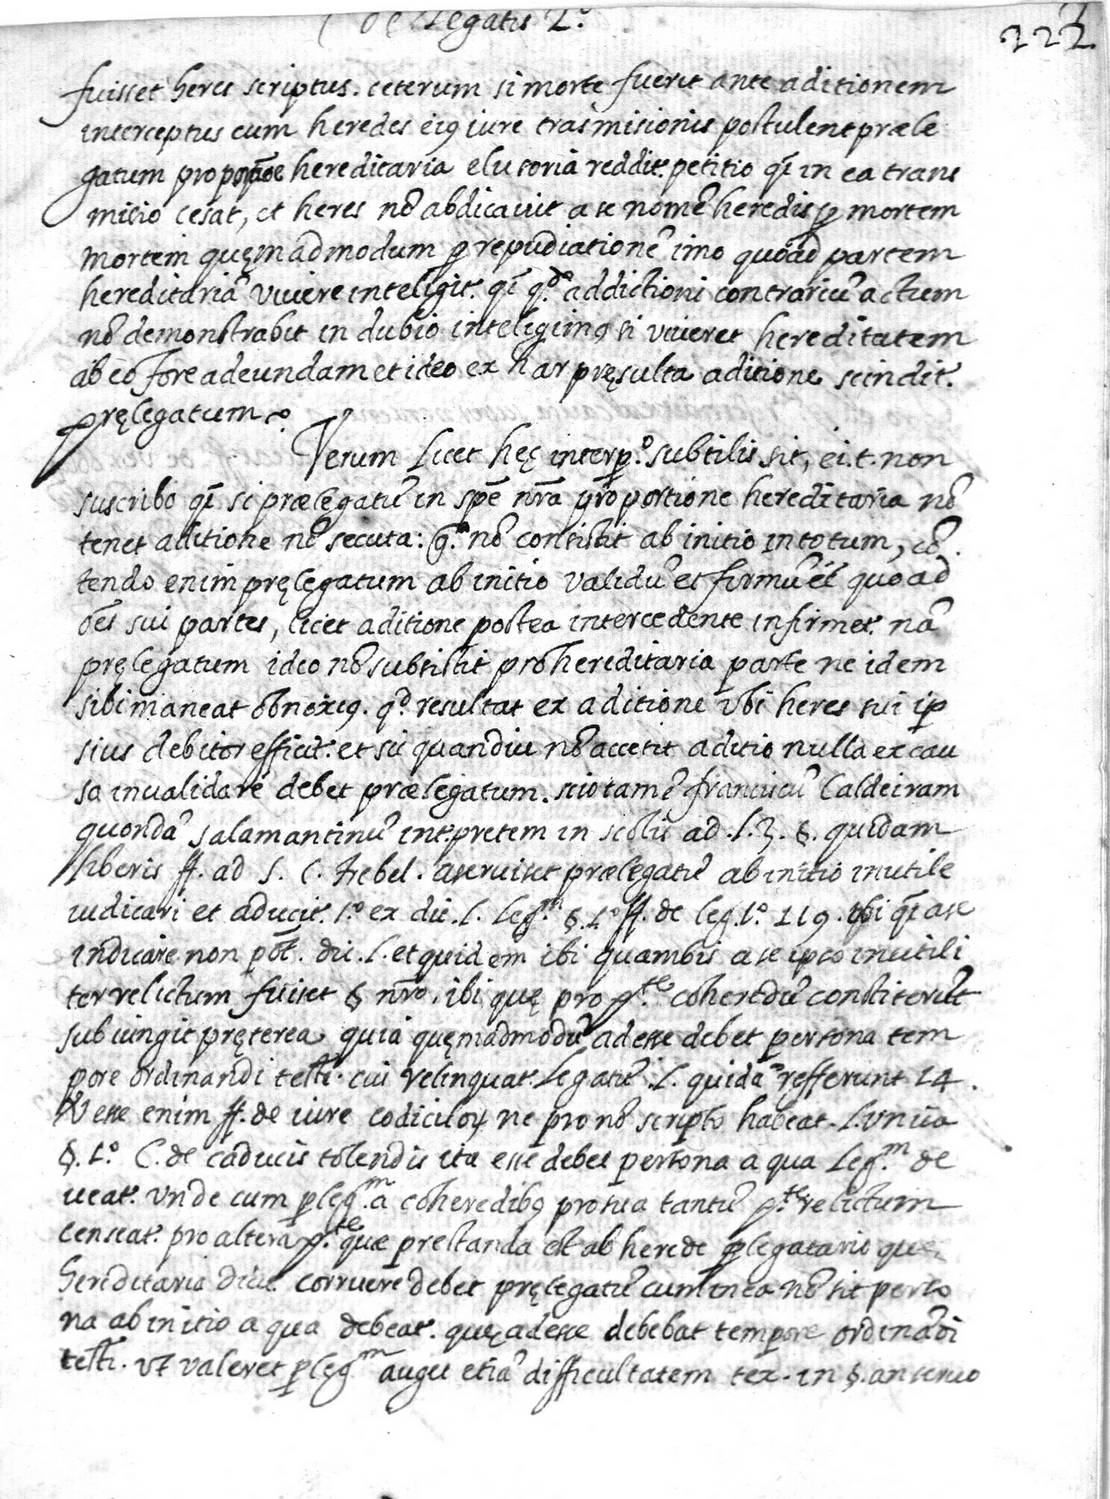 De Legatis 2.º
222
fuisset heres scriptus. ceterum si morte fuerit ante aditionem
interceptus cum heredes ei9 iure trasmisionis postulent præle
gatum pro hereditaria elusoria reddit. petitio qĩ in ea trans
misio cesat, et heres nõ abdicavit a se nomẽ heredis p mortem
mortem quęmadmodum p repudiationẽ imo quoad partem
hereditariã vivere inteligit. qĩ q.do addictioni contrariũ actum
nõ demonstrabit in dubio inteligim9 si viveret hereditatem
ab eo fore adeundam et ideo ex har pręsulta aditione scindit.
pręlegatum.
Verum licet hęc interp.º subtilis sit, ei. t. non
suscribo qĩ si prælegatũ in spẽ nrã proportione hereditaria nõ
tenet aditione nõ secuta: g.º nõ consistit ab initio in totum, cõ
tendo enim pręlegatum ab initio validũ et firmũ eẽ quoad
oẽs sui partes, licet aditione postea intercedente infirmet. nã
pręlegatum ideo nõ subsistit pro hereditaria parte ne idem
sibi maneat obnoxi9. q.º resultat ex aditione vbi heres sui ip
sius debitor efficit. et sic quandiu nõ accetit aditio nulla ex cau
sa invalidare debet prælegatum. scio tamẽ franciscũ Caldeiram
quondã salamantinũ intpretem in scolis ad .l. 3. §. quidam
liberis ff. ad S. C. Trebel. aseruiset prælegatũ ab initio inutile
iudicari et aducit. 1.º ex dic. l. leg.m §. 1.º ff. de leg. 1.º 119. ibi qĩ a se
indicare non põt. dic. l. et quidem ibi quambis a se ipso inutili
ter relictum fuiset & nrõ. ibi quę pro p.te coheredũ constiterũt
subiungit pręterea quia quęmadmodũ adesse debet persona tem
pore ordinandi testi. cui relinquat. legatũ .l. quidã refferunt 14.
esse enim ff. de iure codicilor ne pro nõ scripto habeat. l. vnica
§. 1.º C. de caducis tolendis ita esse debet persona a qua leg.m de
ueat. vnde cum pleg.m a coheredib9 pro sua tantũ p.te relictum
censeat. pro altera p.te quæ prestanda est ab herede plegatario que
hereditaria dicit. corruere debet pręlegatũ cum in ea nõ sit perso
na ab initio a qua debeat. quę adesse debebat tempore ordinãdi
testi. vt valeret pleg.m auget etiã difficultatem tex. in §. an servo